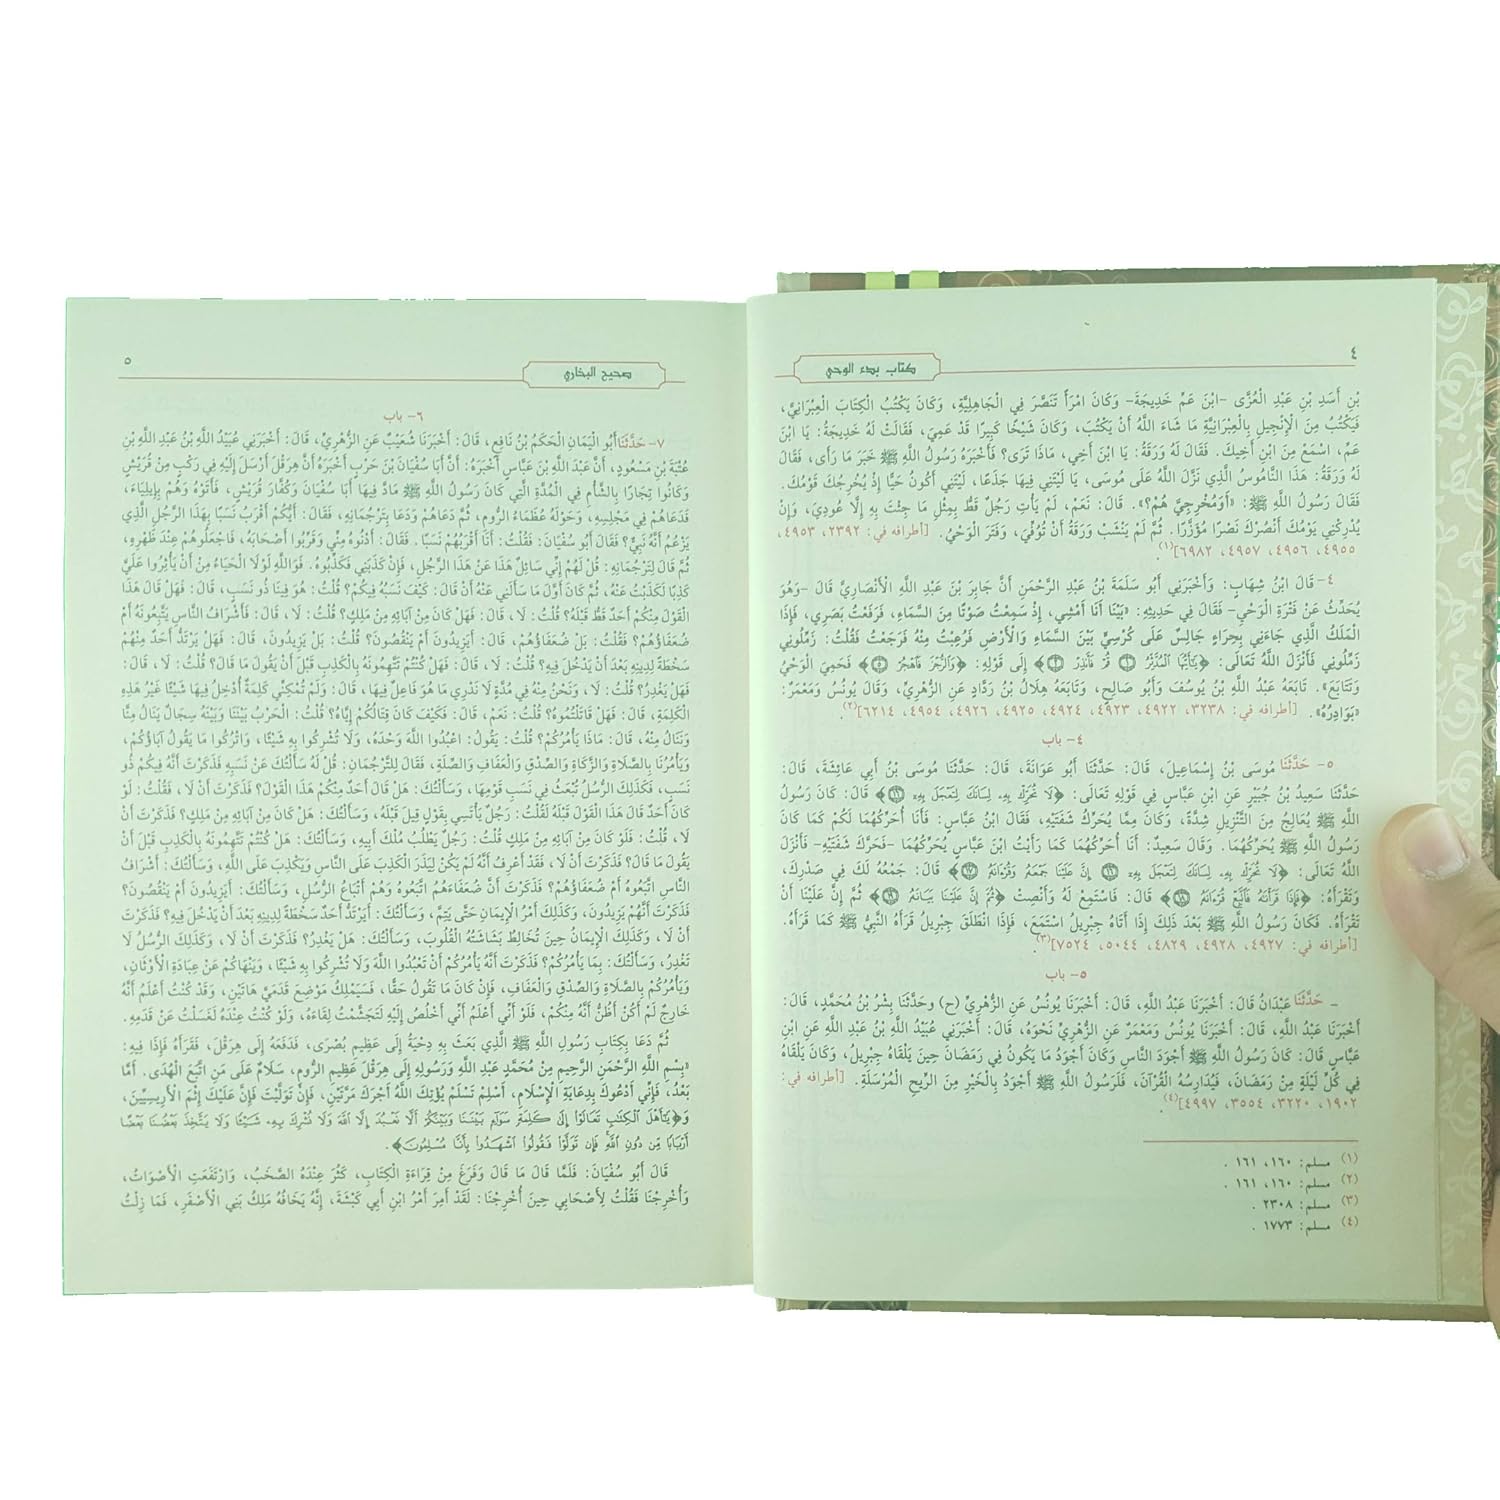 ٤
كتاب بدء الوحي
بْنِ أَسَدِ بْنِ عَبْدِ الْعُزَّى -ابْنَ عَمِّ خَدِيجَةَ- وَكَانَ امْرَأً تَنَصَّرَ فِي الْجَاهِلِيَّةِ، وَكَانَ يَكْتُبُ الْكِتَابَ الْعِبْرَانِيَّ،
فَيَكْتُبُ مِنَ الْإِنْجِيلِ بِالْعِبْرَانِيَّةِ مَا شَاءَ اللَّهُ أَنْ يَكْتُبَ، وَكَانَ شَيْخًا كَبِيرًا قَدْ عَمِيَ، فَقَالَتْ لَهُ خَدِيجَةُ: يَا ابْنَ
عَمِّ، اسْمَعْ مِنَ ابْنِ أَخِيكَ. فَقَالَ لَهُ وَرَقَةُ: يَا ابْنَ أَخِي، مَاذَا تَرَى؟ فَأَخْبَرَهُ رَسُولُ اللَّهِ ﷺ خَبَرَ مَا رَأَى، فَقَالَ
لَهُ وَرَقَةُ: هَذَا النَّامُوسُ الَّذِي نَزَّلَ اللَّهُ عَلَى مُوسَى، يَا لَيْتَنِي فِيهَا جَذَعًا، لَيْتَنِي أَكُونُ حَيًّا إِذْ يُخْرِجُكَ قَوْمُكَ.
فَقَالَ رَسُولُ اللَّهِ ﷺ: «أَوَمُخْرِجِيَّ هُمْ؟». قَالَ: نَعَمْ، لَمْ يَأْتِ رَجُلٌ قَطُّ بِمِثْلِ مَا جِئْتَ بِهِ إِلَّا عُودِيَ، وَإِنْ
يُدْرِكْنِي يَوْمُكَ أَنْصُرْكَ نَصْرًا مُؤَزَّرًا. ثُمَّ لَمْ يَنْشَبْ وَرَقَةُ أَنْ تُوُفِّيَ، وَفَتَرَ الْوَحْيُ. [أطرافه في: ٣٣٩٢، ٤٩٥٣،
٤٩٥٥، ٤٩٥٦، ٤٩٥٧، ٦٩٨٢](١).
٤- قَالَ ابْنُ شِهَابٍ: وَأَخْبَرَنِي أَبُو سَلَمَةَ بْنُ عَبْدِ الرَّحْمَنِ أَنَّ جَابِرَ بْنَ عَبْدِ اللَّهِ الْأَنْصَارِيَّ قَالَ -وَهُوَ
يُحَدِّثُ عَنْ فَتْرَةِ الْوَحْيِ- فَقَالَ فِي حَدِيثِهِ: «بَيْنَا أَنَا أَمْشِي، إِذْ سَمِعْتُ صَوْتًا مِنَ السَّمَاءِ، فَرَفَعْتُ بَصَرِي، فَإِذَا
الْمَلَكُ الَّذِي جَاءَنِي بِحِرَاءٍ جَالِسٌ عَلَى كُرْسِيٍّ بَيْنَ السَّمَاءِ وَالْأَرْضِ فَرُعِبْتُ مِنْهُ فَرَجَعْتُ فَقُلْتُ: زَمِّلُونِي
زَمِّلُونِي فَأَنْزَلَ اللَّهُ تَعَالَى: ﴿يَٰٓأَيُّهَا ٱلْمُدَّثِّرُ ١ قُمْ فَأَنذِرْ ٢﴾ إِلَى قَوْلِهِ: ﴿وَٱلرُّجْزَ فَٱهْجُرْ ٥﴾ فَحَمِيَ الْوَحْيُ
وَتَتَابَعَ». تَابَعَهُ عَبْدُ اللَّهِ بْنُ يُوسُفَ وَأَبُو صَالِحٍ، وَتَابَعَهُ هِلَالُ بْنُ رَدَّادٍ عَنِ الزُّهْرِيِّ، وَقَالَ يُونُسُ وَمَعْمَرٌ:
«بَوَادِرُهُ». [أطرافه في: ٣٢٣٨، ٤٩٢٢، ٤٩٢٣، ٤٩٢٤، ٤٩٢٥، ٤٩٢٦، ٤٩٥٤، ٦٢١٤](٢).
٤- باب
٥- حَدَّثَنَا مُوسَى بْنُ إِسْمَاعِيلَ، قَالَ: حَدَّثَنَا أَبُو عَوَانَةَ، قَالَ: حَدَّثَنَا مُوسَى بْنُ أَبِي عَائِشَةَ، قَالَ:
حَدَّثَنَا سَعِيدُ بْنُ جُبَيْرٍ عَنِ ابْنِ عَبَّاسٍ فِي قَوْلِهِ تَعَالَى: ﴿لَا تُحَرِّكْ بِهِۦ لِسَانَكَ لِتَعْجَلَ بِهِۦٓ ١٦﴾ قَالَ: كَانَ رَسُولُ
اللَّهِ ﷺ يُعَالِجُ مِنَ التَّنْزِيلِ شِدَّةً، وَكَانَ مِمَّا يُحَرِّكُ شَفَتَيْهِ، فَقَالَ ابْنُ عَبَّاسٍ: فَأَنَا أُحَرِّكُهُمَا لَكُمْ كَمَا كَانَ
رَسُولُ اللَّهِ ﷺ يُحَرِّكُهُمَا. وَقَالَ سَعِيدٌ: أَنَا أُحَرِّكُهُمَا كَمَا رَأَيْتُ ابْنَ عَبَّاسٍ يُحَرِّكُهُمَا -فَحَرَّكَ شَفَتَيْهِ- فَأَنْزَلَ
اللَّهُ تَعَالَى: ﴿لَا تُحَرِّكْ بِهِۦ لِسَانَكَ لِتَعْجَلَ بِهِۦٓ ١٦ إِنَّ عَلَيْنَا جَمْعَهُۥ وَقُرْءَانَهُۥ ١٧﴾ قَالَ: جَمْعُهُ لَكَ فِي صَدْرِكَ،
وَتَقْرَأَهُ: ﴿فَإِذَا قَرَأْنَٰهُ فَٱتَّبِعْ قُرْءَانَهُۥ ١٨﴾ قَالَ: فَاسْتَمِعْ لَهُ وَأَنْصِتْ ﴿ثُمَّ إِنَّ عَلَيْنَا بَيَانَهُۥ ١٩﴾ ثُمَّ إِنَّ عَلَيْنَا أَنْ
تَقْرَأَهُ. فَكَانَ رَسُولُ اللَّهِ ﷺ بَعْدَ ذَلِكَ إِذَا أَتَاهُ جِبْرِيلُ اسْتَمَعَ، فَإِذَا انْطَلَقَ جِبْرِيلُ قَرَأَهُ النَّبِيُّ ﷺ كَمَا قَرَأَهُ.
[أطرافه في: ٤٩٢٧، ٤٩٢٨، ٤٩٢٩، ٥٠٤٤، ٧٥٢٤](٣).
٥- باب
_ حَدَّثَنَا عَبْدَانُ قَالَ: أَخْبَرَنَا عَبْدُ اللَّهِ، قَالَ: أَخْبَرَنَا يُونُسُ عَنِ الزُّهْرِيِّ (ح) وحَدَّثَنَا بِشْرُ بْنُ مُحَمَّدٍ، قَالَ:
أَخْبَرَنَا عَبْدُ اللَّهِ، قَالَ: أَخْبَرَنَا يُونُسُ وَمَعْمَرٌ عَنِ الزُّهْرِيِّ نَحْوَهُ، قَالَ: أَخْبَرَنِي عُبَيْدُ اللَّهِ بْنُ عَبْدِ اللَّهِ عَنِ ابْنِ
عَبَّاسٍ قَالَ: كَانَ رَسُولُ اللَّهِ ﷺ أَجْوَدَ النَّاسِ وَكَانَ أَجْوَدُ مَا يَكُونُ فِي رَمَضَانَ حِينَ يَلْقَاهُ جِبْرِيلُ، وَكَانَ يَلْقَاهُ
فِي كُلِّ لَيْلَةٍ مِنْ رَمَضَانَ، فَيُدَارِسُهُ الْقُرْآنَ، فَلَرَسُولُ اللَّهِ ﷺ أَجْوَدُ بِالْخَيْرِ مِنَ الرِّيحِ الْمُرْسَلَةِ. [أطرافه في:
١٩٠٢، ٣٢٢٠، ٣٥٥٤، ٤٩٩٧](٤).
(١) مسلم: ١٦٠، ١٦١ .
(٢) مسلم: ١٦٠، ١٦١ .
(٣) مسلم: ٢٣٠٨ .
(٤) مسلم: ١٧٧٣ .
صحيح البخاري
٥
٦- باب
٧- حَدَّثَنَا أَبُو الْيَمَانِ الْحَكَمُ بْنُ نَافِعٍ، قَالَ: أَخْبَرَنَا شُعَيْبٌ عَنِ الزُّهْرِيِّ، قَالَ: أَخْبَرَنِي عُبَيْدُ اللَّهِ بْنُ عَبْدِ اللَّهِ بْنِ
عُتْبَةَ بْنِ مَسْعُودٍ، أَنَّ عَبْدَ اللَّهِ بْنَ عَبَّاسٍ أَخْبَرَهُ: أَنَّ أَبَا سُفْيَانَ بْنَ حَرْبٍ أَخْبَرَهُ أَنَّ هِرَقْلَ أَرْسَلَ إِلَيْهِ فِي رَكْبٍ مِنْ قُرَيْشٍ
وَكَانُوا تِجَارًا بِالشَّأْمِ فِي الْمُدَّةِ الَّتِي كَانَ رَسُولُ اللَّهِ ﷺ مَادَّ فِيهَا أَبَا سُفْيَانَ وَكُفَّارَ قُرَيْشٍ، فَأَتَوْهُ وَهُمْ بِإِيلِيَاءَ،
فَدَعَاهُمْ فِي مَجْلِسِهِ، وَحَوْلَهُ عُظَمَاءُ الرُّومِ، ثُمَّ دَعَاهُمْ وَدَعَا بِتَرْجُمَانِهِ، فَقَالَ: أَيُّكُمْ أَقْرَبُ نَسَبًا بِهَذَا الرَّجُلِ الَّذِي
يَزْعُمُ أَنَّهُ نَبِيٌّ؟ فَقَالَ أَبُو سُفْيَانَ: فَقُلْتُ: أَنَا أَقْرَبُهُمْ نَسَبًا. فَقَالَ: أَدْنُوهُ مِنِّي وَقَرِّبُوا أَصْحَابَهُ، فَاجْعَلُوهُمْ عِنْدَ ظَهْرِهِ،
ثُمَّ قَالَ لِتَرْجُمَانِهِ: قُلْ لَهُمْ إِنِّي سَائِلٌ هَذَا عَنْ هَذَا الرَّجُلِ، فَإِنْ كَذَبَنِي فَكَذِّبُوهُ. فَوَاللَّهِ لَوْلَا الْحَيَاءُ مِنْ أَنْ يَأْثِرُوا عَلَيَّ
كَذِبًا لَكَذَبْتُ عَنْهُ، ثُمَّ كَانَ أَوَّلَ مَا سَأَلَنِي عَنْهُ أَنْ قَالَ: كَيْفَ نَسَبُهُ فِيكُمْ؟ قُلْتُ: هُوَ فِينَا ذُو نَسَبٍ، قَالَ: فَهَلْ قَالَ هَذَا
الْقَوْلَ مِنْكُمْ أَحَدٌ قَطُّ قَبْلَهُ؟ قُلْتُ: لَا، قَالَ: فَهَلْ كَانَ مِنْ آبَائِهِ مِنْ مَلِكٍ؟ قُلْتُ: لَا، قَالَ: فَأَشْرَافُ النَّاسِ يَتَّبِعُونَهُ أَمْ
ضُعَفَاؤُهُمْ؟ فَقُلْتُ: بَلْ ضُعَفَاؤُهُمْ، قَالَ: أَيَزِيدُونَ أَمْ يَنْقُصُونَ؟ قُلْتُ: بَلْ يَزِيدُونَ، قَالَ: فَهَلْ يَرْتَدُّ أَحَدٌ مِنْهُمْ
سَخْطَةً لِدِينِهِ بَعْدَ أَنْ يَدْخُلَ فِيهِ؟ قُلْتُ: لَا، قَالَ: فَهَلْ كُنْتُمْ تَتَّهِمُونَهُ بِالْكَذِبِ قَبْلَ أَنْ يَقُولَ مَا قَالَ؟ قُلْتُ: لَا، قَالَ:
فَهَلْ يَغْدِرُ؟ قُلْتُ: لَا، وَنَحْنُ مِنْهُ فِي مُدَّةٍ لَا نَدْرِي مَا هُوَ فَاعِلٌ فِيهَا، قَالَ: وَلَمْ تُمْكِنِّي كَلِمَةٌ أُدْخِلُ فِيهَا شَيْئًا غَيْرُ هَذِهِ
الْكَلِمَةِ، قَالَ: فَهَلْ قَاتَلْتُمُوهُ؟ قُلْتُ: نَعَمْ، قَالَ: فَكَيْفَ كَانَ قِتَالُكُمْ إِيَّاهُ؟ قُلْتُ: الْحَرْبُ بَيْنَنَا وَبَيْنَهُ سِجَالٌ يَنَالُ مِنَّا
وَنَنَالُ مِنْهُ، قَالَ: مَاذَا يَأْمُرُكُمْ؟ قُلْتُ: يَقُولُ: اعْبُدُوا اللَّهَ وَحْدَهُ، وَلَا تُشْرِكُوا بِهِ شَيْئًا، وَاتْرُكُوا مَا يَقُولُ آبَاؤُكُمْ،
وَيَأْمُرُنَا بِالصَّلَاةِ وَالزَّكَاةِ وَالصِّدْقِ وَالْعَفَافِ وَالصِّلَةِ، فَقَالَ لِلتَّرْجُمَانِ: قُلْ لَهُ سَأَلْتُكَ عَنْ نَسَبِهِ فَذَكَرْتَ أَنَّهُ فِيكُمْ ذُو
نَسَبٍ، فَكَذَلِكَ الرُّسُلُ تُبْعَثُ فِي نَسَبِ قَوْمِهَا، وَسَأَلْتُكَ: هَلْ قَالَ أَحَدٌ مِنْكُمْ هَذَا الْقَوْلَ؟ فَذَكَرْتَ أَنْ لَا، فَقُلْتُ: لَوْ
كَانَ أَحَدٌ قَالَ هَذَا الْقَوْلَ قَبْلَهُ لَقُلْتُ: رَجُلٌ يَأْتَسِي بِقَوْلٍ قِيلَ قَبْلَهُ، وَسَأَلْتُكَ: هَلْ كَانَ مِنْ آبَائِهِ مِنْ مَلِكٍ؟ فَذَكَرْتَ أَنْ
لَا، قُلْتُ: فَلَوْ كَانَ مِنْ آبَائِهِ مِنْ مَلِكٍ قُلْتُ: رَجُلٌ يَطْلُبُ مُلْكَ أَبِيهِ، وَسَأَلْتُكَ: هَلْ كُنْتُمْ تَتَّهِمُونَهُ بِالْكَذِبِ قَبْلَ أَنْ
يَقُولَ مَا قَالَ؟ فَذَكَرْتَ أَنْ لَا، فَقَدْ أَعْرِفُ أَنَّهُ لَمْ يَكُنْ لِيَذَرَ الْكَذِبَ عَلَى النَّاسِ وَيَكْذِبَ عَلَى اللَّهِ، وَسَأَلْتُكَ: أَشْرَافُ
النَّاسِ اتَّبَعُوهُ أَمْ ضُعَفَاؤُهُمْ؟ فَذَكَرْتَ أَنَّ ضُعَفَاءَهُمُ اتَّبَعُوهُ وَهُمْ أَتْبَاعُ الرُّسُلِ، وَسَأَلْتُكَ: أَيَزِيدُونَ أَمْ يَنْقُصُونَ؟
فَذَكَرْتَ أَنَّهُمْ يَزِيدُونَ، وَكَذَلِكَ أَمْرُ الْإِيمَانِ حَتَّى يَتِمَّ، وَسَأَلْتُكَ: أَيَرْتَدُّ أَحَدٌ سَخْطَةً لِدِينِهِ بَعْدَ أَنْ يَدْخُلَ فِيهِ؟ فَذَكَرْتَ
أَنْ لَا، وَكَذَلِكَ الْإِيمَانُ حِينَ تُخَالِطُ بَشَاشَتُهُ الْقُلُوبَ، وَسَأَلْتُكَ: هَلْ يَغْدِرُ؟ فَذَكَرْتَ أَنْ لَا، وَكَذَلِكَ الرُّسُلُ لَا
تَغْدِرُ، وَسَأَلْتُكَ: بِمَا يَأْمُرُكُمْ؟ فَذَكَرْتَ أَنَّهُ يَأْمُرُكُمْ أَنْ تَعْبُدُوا اللَّهَ وَلَا تُشْرِكُوا بِهِ شَيْئًا، وَيَنْهَاكُمْ عَنْ عِبَادَةِ الْأَوْثَانِ،
وَيَأْمُرُكُمْ بِالصَّلَاةِ وَالصِّدْقِ وَالْعَفَافِ، فَإِنْ كَانَ مَا تَقُولُ حَقًّا، فَسَيَمْلِكُ مَوْضِعَ قَدَمَيَّ هَاتَيْنِ، وَقَدْ كُنْتُ أَعْلَمُ أَنَّهُ
خَارِجٌ لَمْ أَكُنْ أَظُنُّ أَنَّهُ مِنْكُمْ، فَلَوْ أَنِّي أَعْلَمُ أَنِّي أَخْلُصُ إِلَيْهِ لَتَجَشَّمْتُ لِقَاءَهُ، وَلَوْ كُنْتُ عِنْدَهُ لَغَسَلْتُ عَنْ قَدَمِهِ.
ثُمَّ دَعَا بِكِتَابِ رَسُولِ اللَّهِ ﷺ الَّذِي بَعَثَ بِهِ دِحْيَةُ إِلَى عَظِيمِ بُصْرَى، فَدَفَعَهُ إِلَى هِرَقْلَ، فَقَرَأَهُ فَإِذَا فِيهِ:
«بِسْمِ اللَّهِ الرَّحْمَنِ الرَّحِيمِ مِنْ مُحَمَّدٍ عَبْدِ اللَّهِ وَرَسُولِهِ إِلَى هِرَقْلَ عَظِيمِ الرُّومِ، سَلَامٌ عَلَى مَنِ اتَّبَعَ الْهُدَى. أَمَّا
بَعْدُ، فَإِنِّي أَدْعُوكَ بِدِعَايَةِ الْإِسْلَامِ، أَسْلِمْ تَسْلَمْ يُؤْتِكَ اللَّهُ أَجْرَكَ مَرَّتَيْنِ، فَإِنْ تَوَلَّيْتَ فَإِنَّ عَلَيْكَ إِثْمَ الْأَرِيسِيِّينَ،
وَ﴿يَٰٓأَهْلَ ٱلْكِتَٰبِ تَعَالَوْا۟ إِلَىٰ كَلِمَةٍ سَوَآءٍۭ بَيْنَنَا وَبَيْنَكُمْ أَلَّا نَعْبُدَ إِلَّا ٱللَّهَ وَلَا نُشْرِكَ بِهِۦ شَيْـًٔا وَلَا يَتَّخِذَ بَعْضُنَا بَعْضًا
أَرْبَابًا مِّن دُونِ ٱللَّهِ فَإِن تَوَلَّوْا۟ فَقُولُوا۟ ٱشْهَدُوا۟ بِأَنَّا مُسْلِمُونَ﴾.
قَالَ أَبُو سُفْيَانَ: فَلَمَّا قَالَ مَا قَالَ وَفَرَغَ مِنْ قِرَاءَةِ الْكِتَابِ، كَثُرَ عِنْدَهُ الصَّخَبُ، وَارْتَفَعَتِ الْأَصْوَاتُ،
وَأُخْرِجْنَا فَقُلْتُ لِأَصْحَابِي حِينَ أُخْرِجْنَا: لَقَدْ أَمِرَ أَمْرُ ابْنِ أَبِي كَبْشَةَ، إِنَّهُ يَخَافُهُ مَلِكُ بَنِي الْأَصْفَرِ، فَمَا زِلْتُ